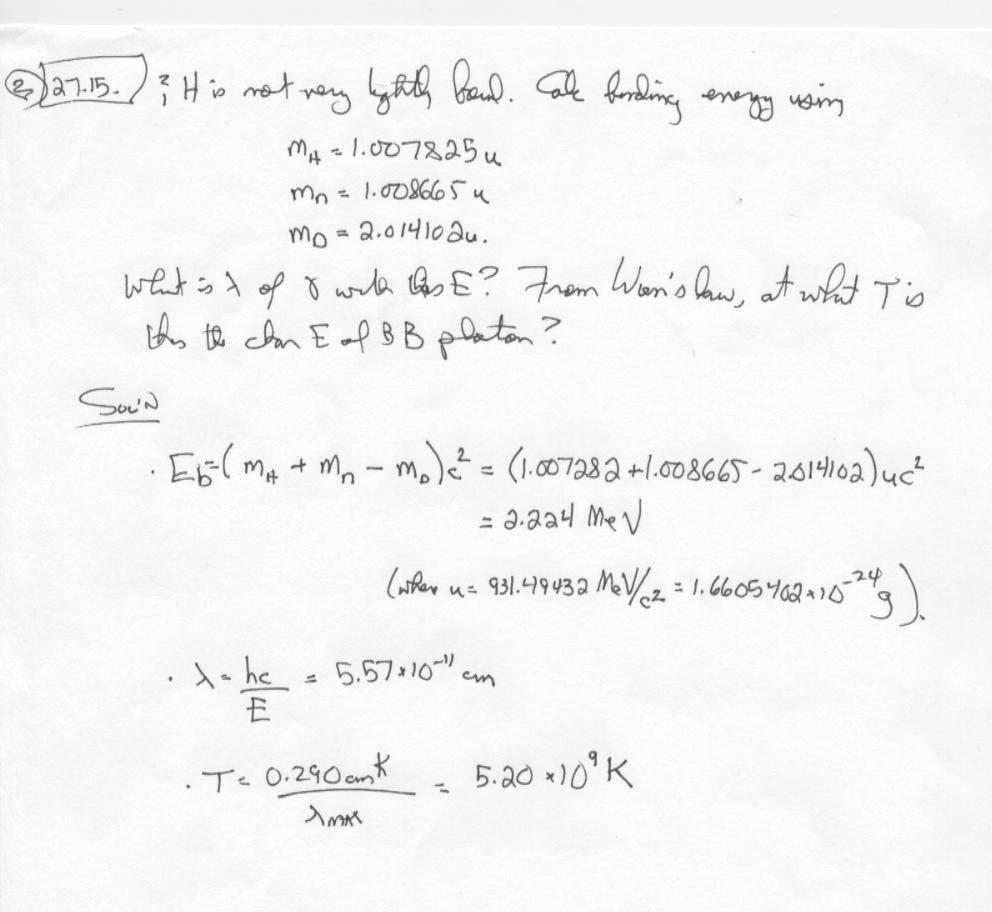 ② 27.15. ²₁H is not very tightly bound. Calc binding energy using
m_H = 1.007825 u
m_n = 1.008665 u
m_D = 2.014102 u.
What is λ of γ with this E? From Wien's law, at what T is
this the char E of BB photon?
Sol'N
· E_b = (m_H + m_n - m_D)c² = (1.007282 + 1.008665 - 2.014102)uc²
= 2.224 MeV
(where u = 931.49432 MeV/c² = 1.6605402 × 10⁻²⁴ g).
· λ = hc/E = 5.57 × 10⁻¹¹ cm
· T = 0.290 cm K/λ_MAX = 5.20 × 10⁹ K